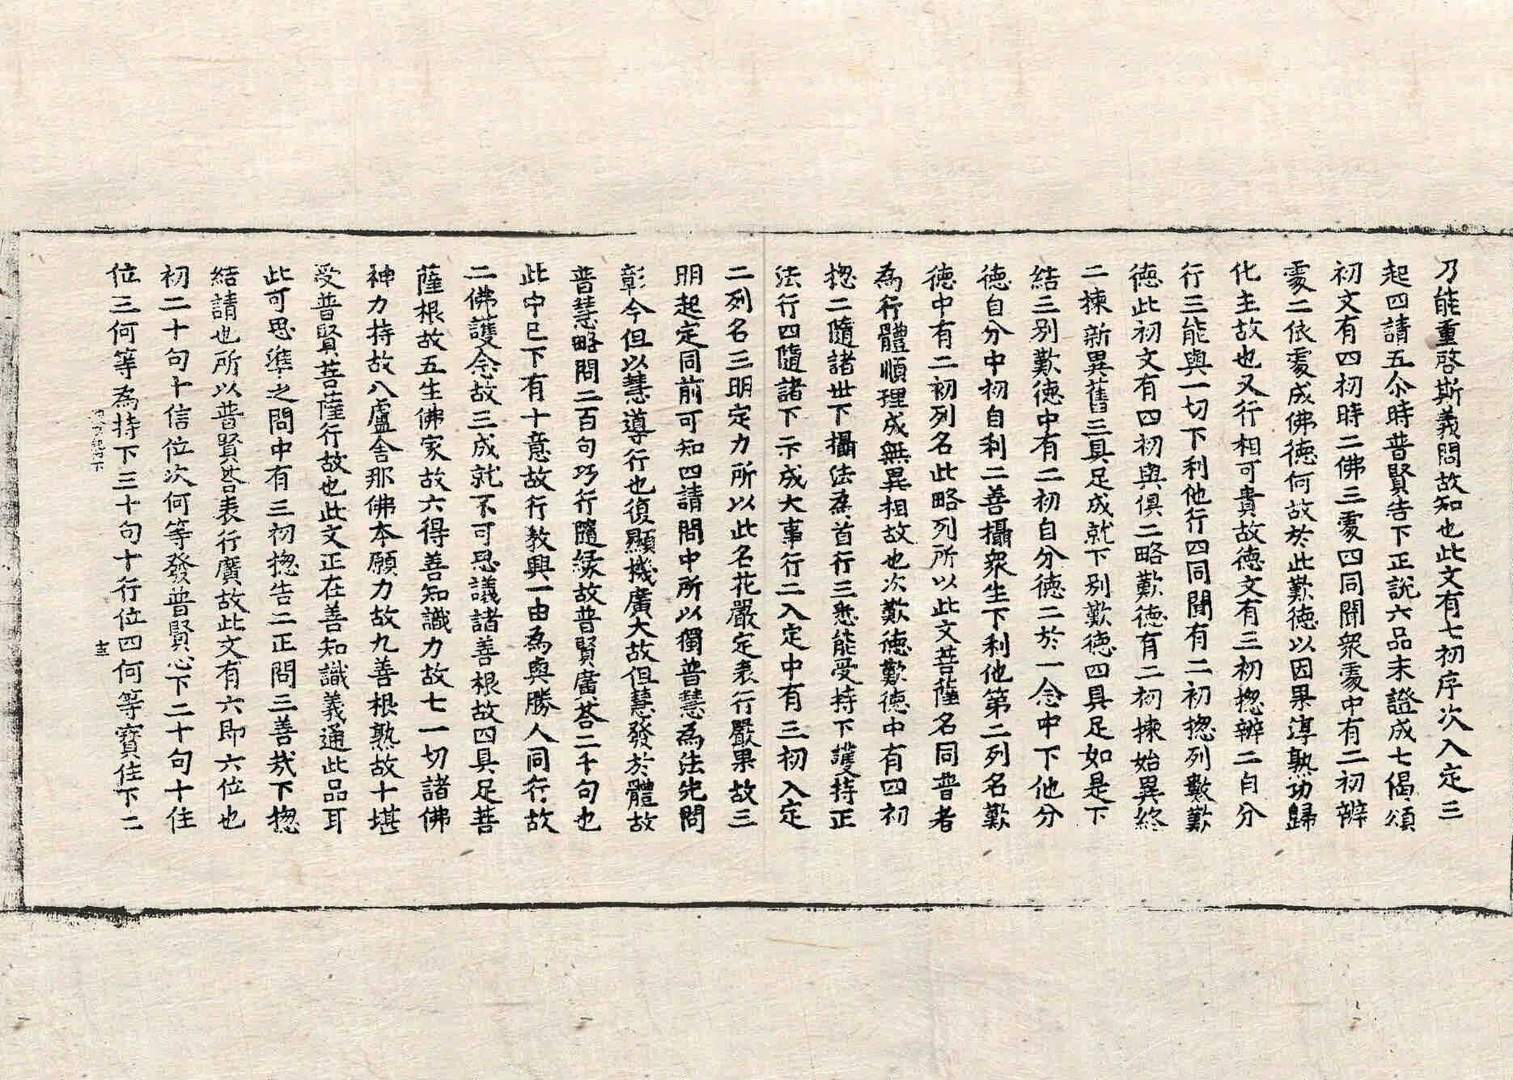 乃能重啓斯義問故知也此文有七初序次入定三
起四請五尒時普賢告下正說六品末證成七偈頌
初文有四初時二佛三處四同聞衆處中有二初辨
處二依處成佛德何故於此歎德以因果淳熟功歸
化主故也又行相可貴故德文有三初揔辨二自分
行三能與一切下利他行四同聞有二初揔列數歎
德此初文有四初與俱二略歎德有二初揀始異終
二揀新異舊三具足成就下別歎德四具足如是下
結三別歎德中有二初自分德二於一念中下他分
德自分中初自利二善攝衆生下利他第二列名歎
德中有二初列名此略列所以此文菩薩名同普者
為行體順理成無異相故也次歎德歎德中有四初
揔二隨諸世下攝法為首行三悉能受持下護持正
法行四隨諸下示成大事行二入定中有三初入定
二列名三明定力所以此名花嚴定表行嚴果故三
明起定同前可知四請問中所以獨普慧為法先問
彰今但以慧導行也復顯機廣大故但慧發於體故
普慧略問二百句巧行隨緣故普賢廣荅二千句也
此中已下有十意故行教興一由為與勝人同行故
二佛護念故三成就不可思議諸善根故四具足菩
薩根故五生佛家故六得善知識力故七一切諸佛
神力持故八盧舍那佛本願力故九善根熟故十堪
受普賢菩薩行故也此文正在善知識義通此品耳
此可思準之問中有三初揔告二正問三善哉下揔
結請也所以普賢荅表行廣故此文有六即六位也
初二十句十信位次何等發普賢心下二十句十住
位三何等為持下三十句十行位四何等寶住下二
十三